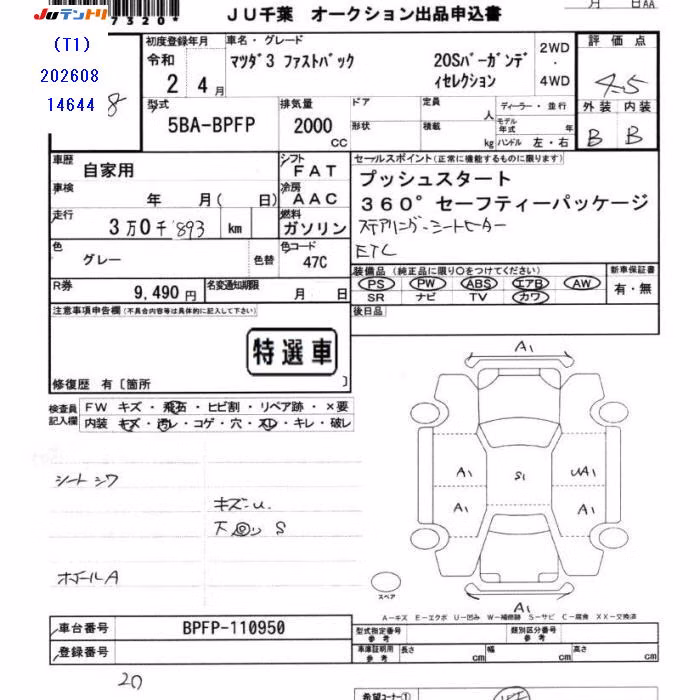 JU テントリ
7320*
JU千葉 オークション出品申込書
月 日AA
(T1)
202608
14644
8
初度登録年月
令和
2年4月
車名・グレード
マツダ3 ファストバック
20Sバーガンデ
ィセレクション
2WD
・
4WD
評価点
4.5
外装 内装
B B
型式
5BA-BPFP
排気量
2000
cc
ドア
形状
定員 人
積載 kg
ディーラー・並行
モデル年式 年
ハンドル 左・右
車歴
自家用
シフト
FAT
車検
年 月( 日)
冷房
AAC
走行
3万0千893 km
燃料
ガソリン
色
グレー
色替
色コード
47C
R券
9,490円
名変通知期限
月 日
セールスポイント(正常に機能するものに限ります)
プッシュスタート
360°セーフティーパッケージ
ステアリング・シートヒーター
ETC
装備品(純正品に限り〇をつけてください)
PS PW ABS エアB AW
SR ナビ TV カワ
新車保証書
有・無
後日品
注意事項申告欄(不具合内容等は具体的に記入して下さい)
特選車
修復歴 有〔箇所 〕
検査員
記入欄
FW キズ・飛石・ヒビ割・リペア跡・×要
内装 キズ・汚レ・コゲ・穴・スレ・キレ・破レ
シートシワ
キズ・u.
下回り S
ホイールA
A1
A1
S1
uA1
A1
A1
A1
スペア
A−キズ E−エクボ U−凹み W−補修跡 S−サビ C−腐食 XX−交換済
車台番号
BPFP-110950
登録番号
型式指定番号
参考
類別区分番号
参考
車庫証明用
参考
長さ cm
幅 cm
高さ cm
20
希望コーナー①